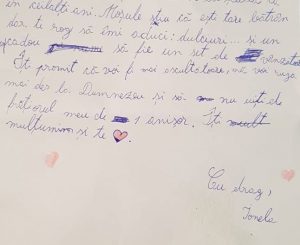 în ceilalți ani. Moșule știu că ești tare bătrân
dar te rog să îmi aduci: dulciuri... și un
cadou să fie un set de vânzătoare
Îți promit că voi fi mai ascultătoare, mă voi ruga
mai des la Dumnezeu și să nu uiți de
frățiorul meu de 1 anișor. Îți
mulțumim și te
Cu drag,
Ionela